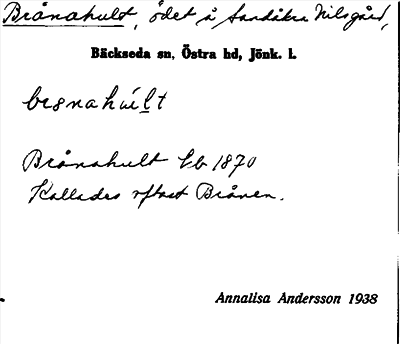 Brånahult, ödet å Sandåkra Nilsgård,
Bäckseda sn, Östra hd, Jönk. l.
Brånahult kb 1870
Kallades oftast Brånen.
Annalisa Andersson 1938